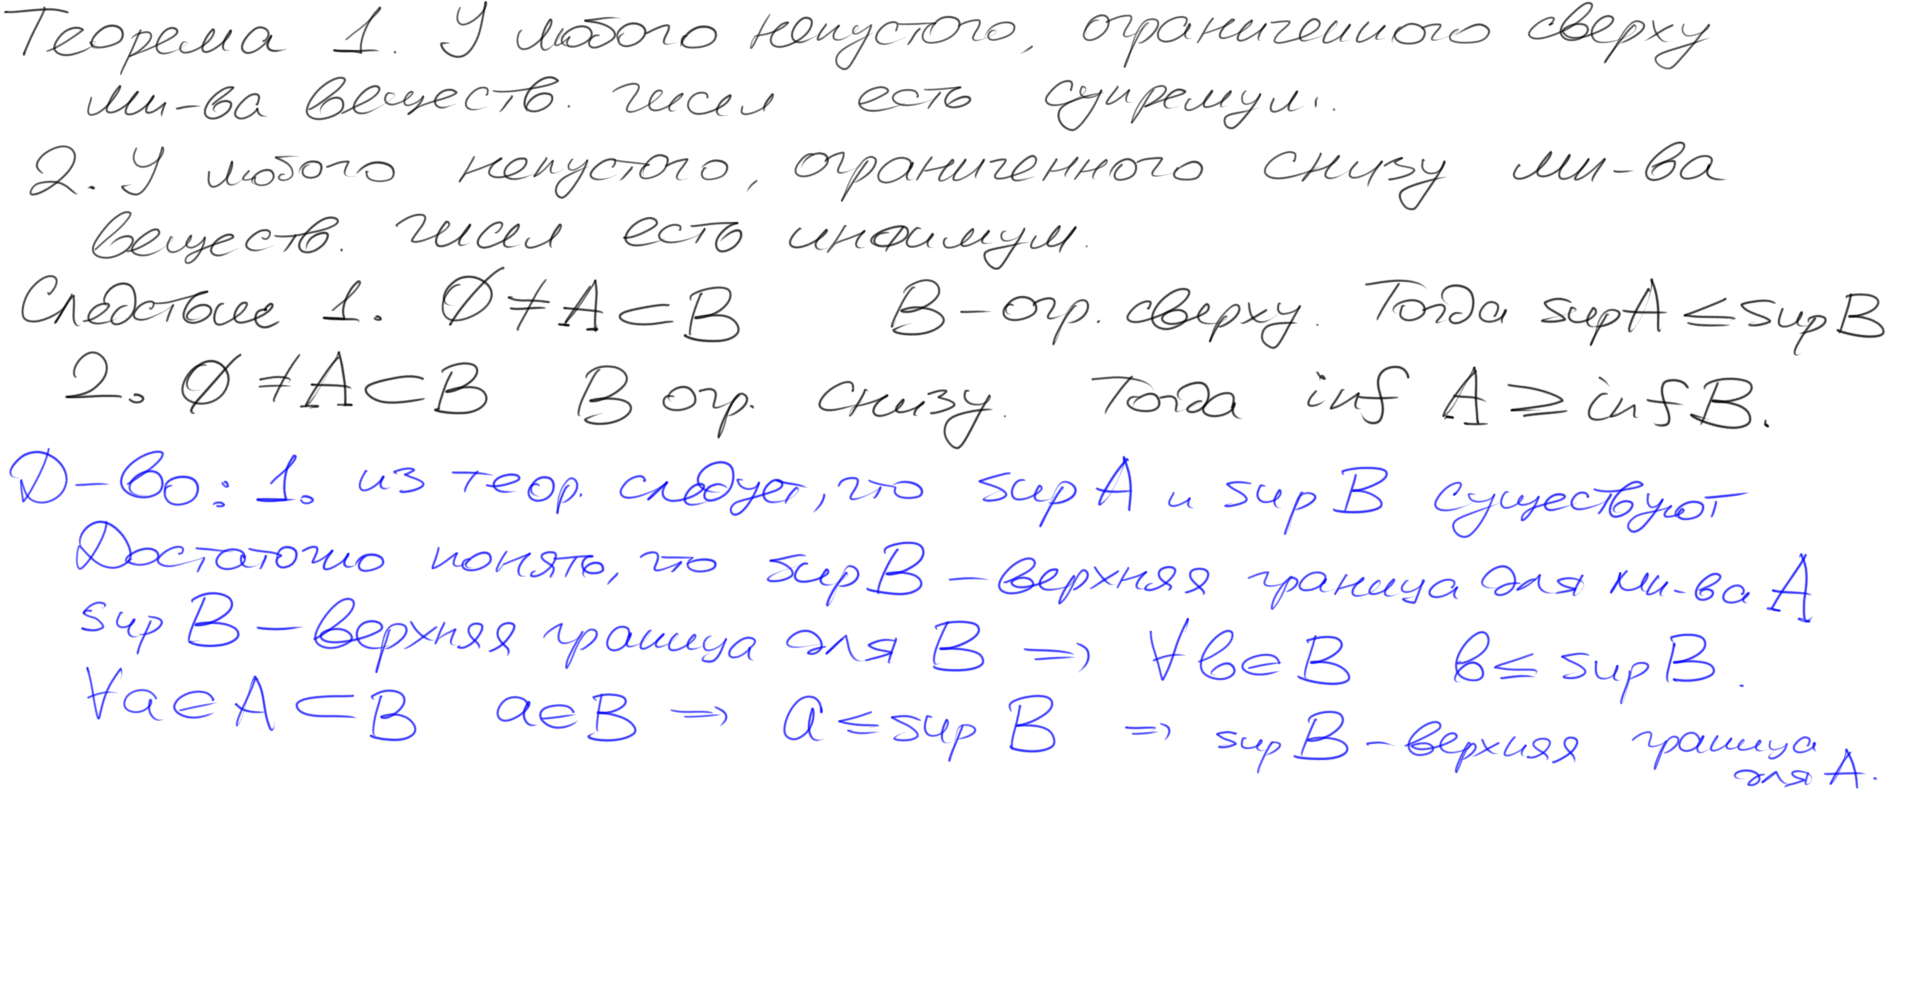 Теорема 1. У любого непустого, ограниченного сверху
мн-ва веществ. чисел есть супремум.
2. У любого непустого, ограниченного снизу мн-ва
веществ. чисел есть инфимум.
Следствие 1. ∅ ≠ A ⊂ B B – огр. сверху. Тогда sup A ≤ sup B
2. ∅ ≠ A ⊂ B B огр. снизу. Тогда inf A ≥ inf B.
Д-во: 1. из теор. следует, что sup A и sup B существуют
Достаточно понять, что sup B – верхняя граница для мн-ва A
sup B – верхняя граница для B ⇒ ∀b∈B b ≤ sup B.
∀a∈A ⊂ B a∈B ⇒ a ≤ sup B ⇒ sup B – верхняя граница
для A.